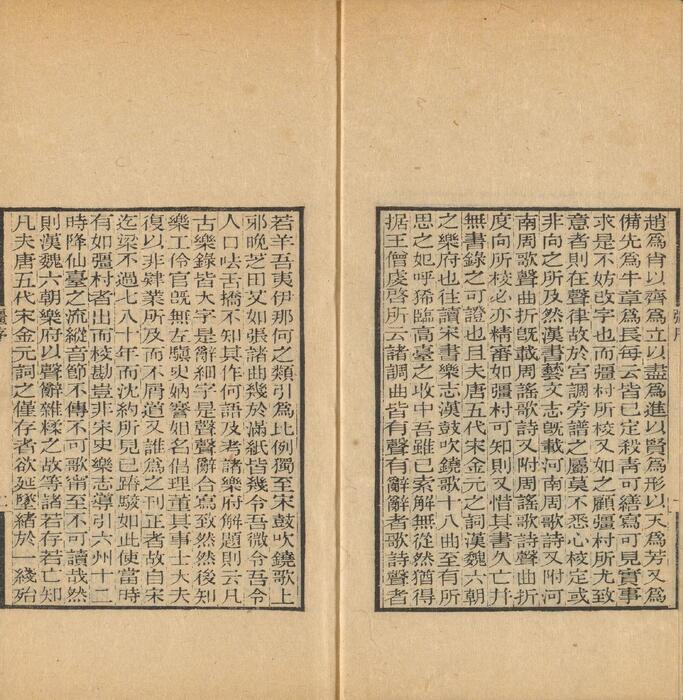 趙為肖以齊為立以盡為進以賢為形以天為芳又為
備先為牛章為長每云皆已定殺青可繕寫可見實事
求是不妨改字也而彊村所校又如之顧彊村所尤致
意者則在聲律故於宮調旁譜之屬莫不悉心核定或
非向之所及然漢書藝文志旣載河南周歌詩又附河
南周歌聲曲折旣載周謠歌詩又附周謠歌詩聲曲折
度向所校必亦精審如彊村可知則又惜其書久亡幷
無書錄之可證也且夫唐五代宋金元之詞漢魏六朝
之樂府也往讀宋書樂志漢鼓吹鐃歌十八曲至有所
思之妃呼豨臨高臺之收中吾雖已索解無從然猶得
据王僧虔啓所云諸調曲皆有聲有辭辭者歌詩聲者
若羊吾夷伊那何之類引為比例獨至宋鼓吹鐃歌上
邪晚芝田艾如張諸曲幾於滿紙皆幾令吾微令吾令
人口呿舌撟不知其作何語及考諸樂府解題則云凡
古樂錄皆大字是辭細字是聲聲辭合寫致然然後知
樂工伶官旣無左驥史妠謇姐名倡理董其事士大夫
復以非肄業所及而不屑道又誰為之刊正者故自宋
迄梁不過七八十年而沈約所見已踳駮如此使當時
有如彊村者出而校勘豈非宋史樂志導引六州十二
時降仙臺之流縱音節不傳不可歌甯至不可讀哉然
則漢魏六朝樂府以聲辭雜糅之故等諸若存若亡知
凡夫唐五代宋金元詞之僅存者欲延墜緒於一綫殆